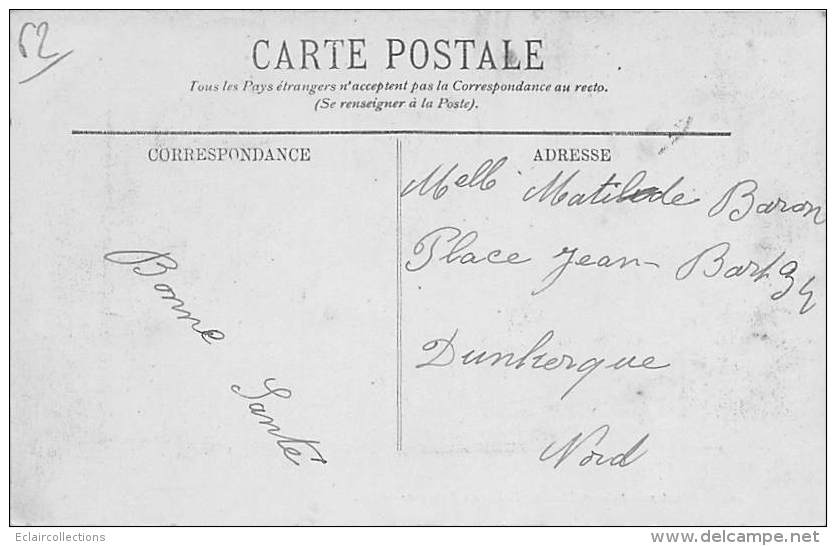 62
CARTE POSTALE
Tous les Pays étrangers n'acceptent pas la Correspondance au recto.
(Se renseigner à la Poste).
CORRESPONDANCE
Bonne
Santé
ADRESSE
Melle Matilde Baron
Place Jean-Bart
Dunkerque
Nord
Eclaircollections
delcampe.net